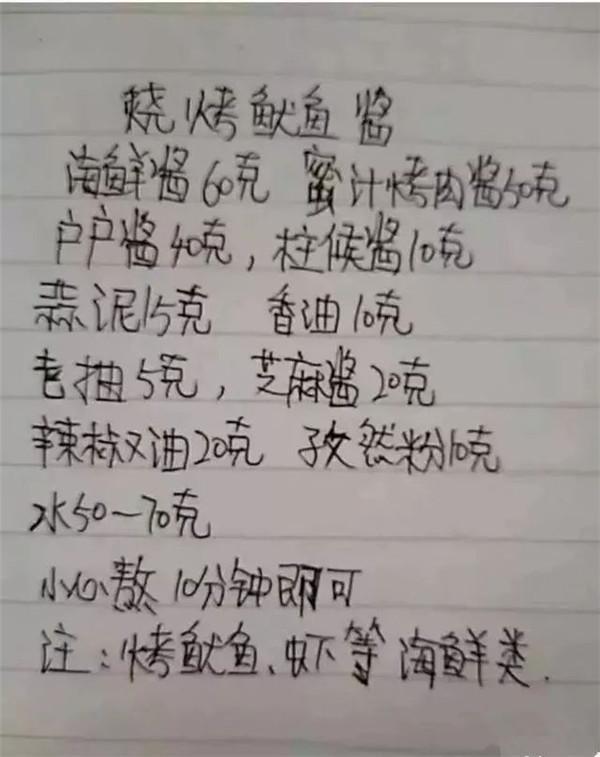 烧烤鱿鱼酱
海鲜酱60克 蜜汁烤肉酱50克
户户酱40克，柱候酱10克
蒜泥15克 香油10克
老抽5克，芝麻酱20克
辣椒油20克 孜然粉10克
水50—70克
小心熬10分钟即可
注：烤鱿鱼、虾等海鲜类.